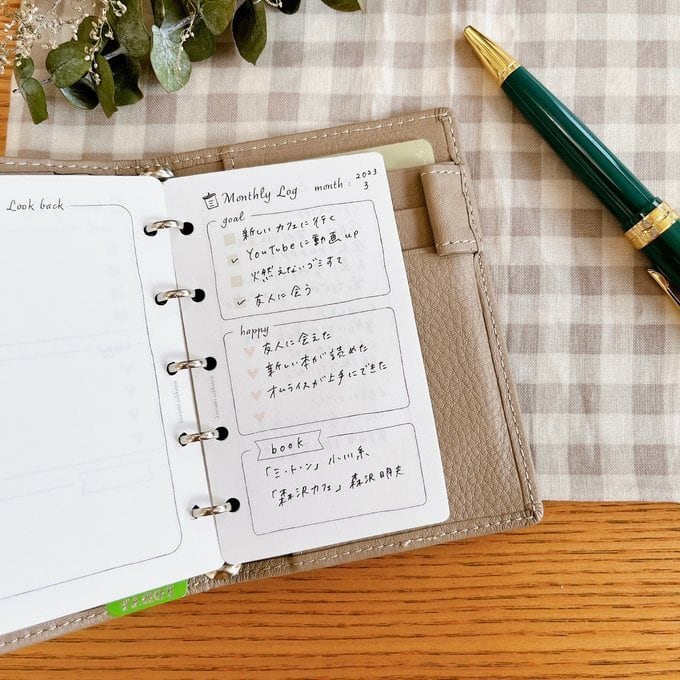 Look back
Monthly Log month : 2023
3
goal
新しいカフェに行く
YouTubeに動画up
火燃えないゴミすて
友人に会う
happy
友人に会えた
新しい本が読めた
オムライスが上手にできた
book
「ミ・ト・ン」小川糸
「森沢カフェ」森沢明夫